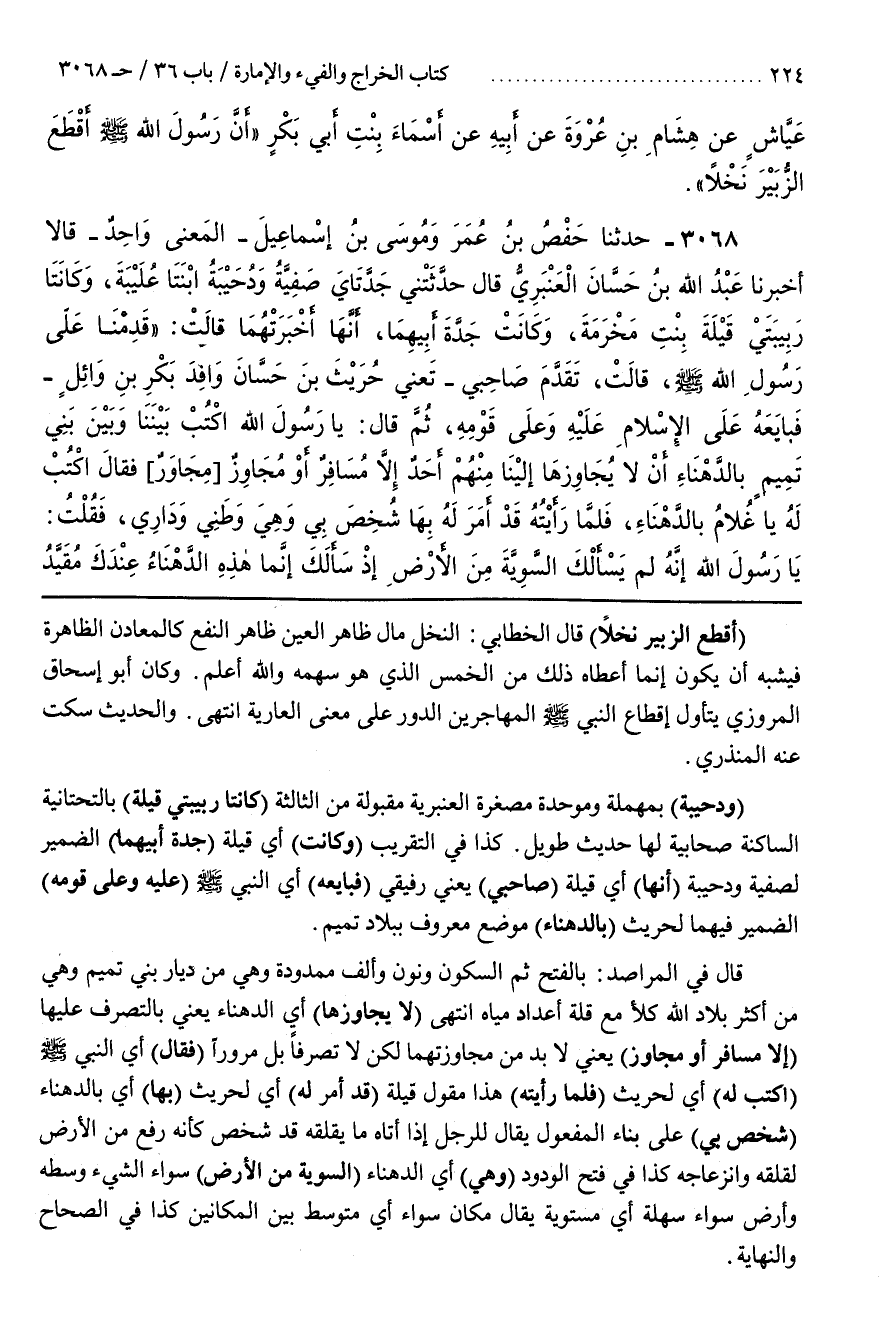 ٢٢٤ .............................. كتاب الخراج والفيء والإمارة / باب ٣٦ / حـ ٣٠٦٨
عَيَّاشٍ عن هِشَامِ بنِ عُرْوَةَ عن أَبِيهِ عن أَسْمَاءَ بِنْتِ أَبي بَكْرٍ «أَنَّ رَسُولَ الله ﷺ أَقْطَعَ
الزُّبَيْرَ نَخْلًا».
٣٠٦٨ ـ حدثنا حَفْصُ بنُ عُمَرَ وَمُوسَى بنُ إسْماعِيلَ ـ المَعنى وَاحِدٌ ـ قالا
أخبرنا عَبْدُ الله بنُ حَسَّانَ الْعَنْبَرِيُّ قال حدَّثَتْني جَدَّتَايَ صَفِيَّةُ وَدُحَيْبَةُ ابْنَتَا عُلَيْبَةَ، وَكَانَتَا
رَبِيبَتَيْ قَيْلَةَ بِنْتِ مَخْرَمَةَ، وَكَانَتْ جَدَّةَ أَبِيهِمَا، أَنَّهَا أَخْبَرَتْهُمَا قالَتْ: «قَدِمْنَا عَلَى
رَسُولِ الله ﷺ، قالَتْ، تَقَدَّمَ صَاحِبي ـ تَعني حُرَيْثَ بنَ حَسَّانَ وَافِدَ بَكْرِ بنِ وَائِلٍ ـ
فَبايَعَهُ عَلَى الإسْلامِ عَلَيْهِ وَعلَى قَوْمِهِ، ثُمَّ قال: يا رَسُولَ الله اكْتُبْ بَيْنَنَا وَبَيْنَ بَنِي
تَمِيمٍ بالدَّهْنَاءِ أَنْ لا يُجَاوِزهَا إلَيْنَا مِنْهُمْ أَحَدٌ إلَّا مُسَافِرٌ أَوْ مُجَاوِزٌ [مِجَاوَرٌ] فقالَ اكْتُبْ
لَهُ يا غُلامُ بالدَّهْنَاءِ، فَلمَّا رَأَيْتُهُ قَدْ أَمَرَ لَهُ بِهَا شُخِصَ بِي وَهِيَ وَطَنِي وَدَارِي، فَقُلْتُ:
يَا رَسُولَ الله إنَّهُ لم يَسْأَلْكَ السَّوِيَّةَ مِنَ الأَرْضِ إذْ سَأَلَكَ إنَّما هٰذِهِ الدَّهْنَاءُ عِنْدَكَ مُقَيَّدُ
(أقطع الزبير نخلاً) قال الخطابي: النخل مال ظاهر العين ظاهر النفع كالمعادن الظاهرة
فيشبه أن يكون إنما أعطاه ذلك من الخمس الذي هو سهمه والله أعلم. وكان أبو إسحاق
المروزي يتأول إقطاع النبي ﷺ المهاجرين الدور على معنى العارية انتهى. والحديث سكت
عنه المنذري.
(ودحيبة) بمهملة وموحدة مصغرة العنبرية مقبولة من الثالثة (كانتا ربيبتي قيلة) بالتحتانية
الساكنة صحابية لها حديث طويل. كذا في التقريب (وكانت) أي قيلة (جدة أبيهما) الضمير
لصفية ودحيبة (أنها) أي قيلة (صاحبي) يعني رفيقي (فبايعه) أي النبي ﷺ (عليه وعلى قومه)
الضمير فيهما لحريث (بالدهناء) موضع معروف ببلاد تميم.
قال في المراصد: بالفتح ثم السكون ونون وألف ممدودة وهي من ديار بني تميم وهي
من أكثر بلاد الله كلأ مع قلة أعداد مياه انتهى (لا يجاوزها) أي الدهناء يعني بالتصرف عليها
(إلا مسافر أو مجاوز) يعني لا بد من مجاوزتهما لكن لا تصرفاً بل مروراً (فقال) أي النبي ﷺ
(اكتب له) أي لحريث (فلما رأيته) هذا مقول قيلة (قد أمر له) أي لحريث (بها) أي بالدهناء
(شخص بي) على بناء المفعول يقال للرجل إذا أتاه ما يقلقه قد شخص كأنه رفع من الأرض
لقلقه وانزعاجه كذا في فتح الودود (وهي) أي الدهناء (السوية من الأرض) سواء الشيء وسطه
وأرض سواء سهلة أي مستوية يقال مكان سواء أي متوسط بين المكانين كذا في الصحاح
والنهاية.